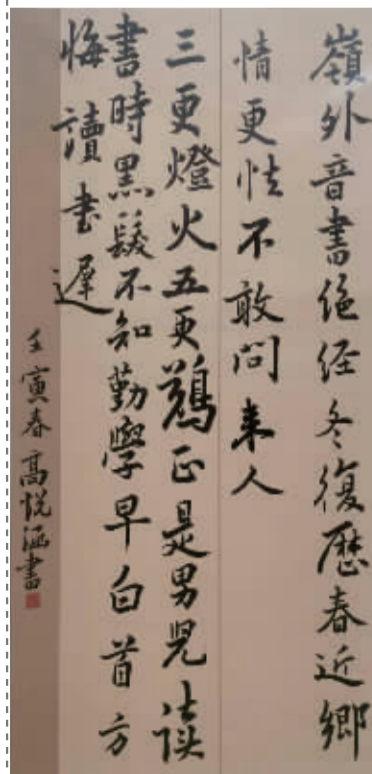 嶺外音書絕经冬復歷春近鄉
情更怯不敢問来人
三更燈火五更鷄正是男児读
書時黒髮不知勤學早白首方
悔讀书遲
壬寅春高悦涵書